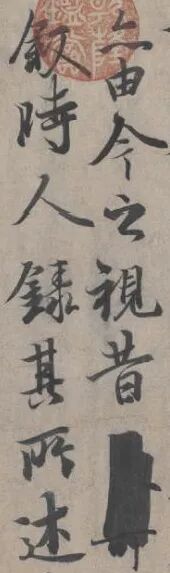 亦由今之視昔
敘時人錄其所述